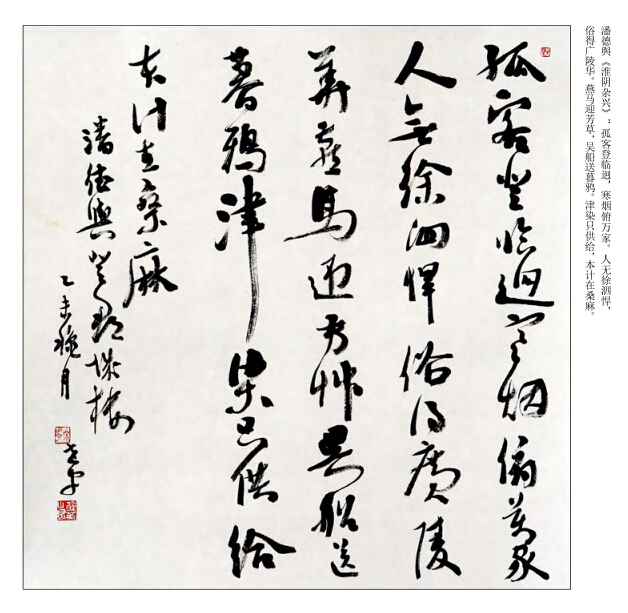 潘德舆《淮阴杂兴》：孤客登临迥，寒烟俯万家。人无徐泗悍，
俗得广陵华。燕马迎芳草，吴船送暮鸦。津染只供给，本计在桑麻。
孤客登临迥寒烟俯万家
人无徐泗悍俗得广陵
华燕马迎芳草吴船送
暮鸦津染只供给
本计在桑麻
潘德舆登
乙未
月